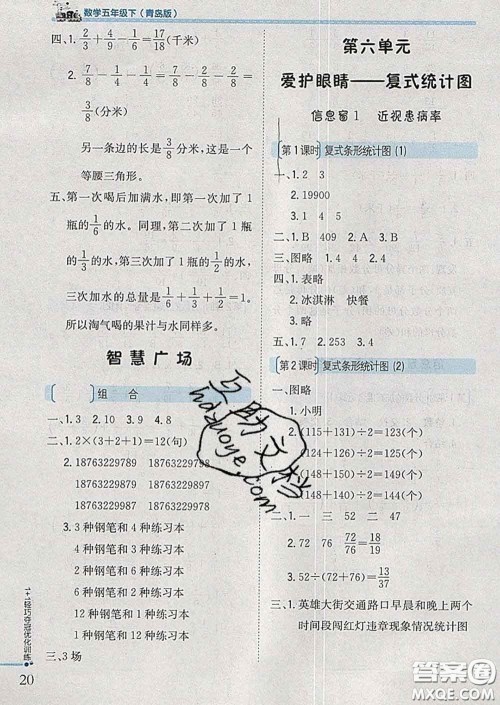 数学五年级下(青岛版)
四、1. 2×17/2=17(千米)
2. 7/8-1/8-3/8=6/8-3/8=3/8
(分米)
另一条边的长是3/8分米,这是一个
等腰三角形。
五、第一次喝后加满水,即第一次加了1
瓶的1/6的水。同理,第二次加了1瓶
的1/3的水,第三次加了1瓶的1/2的水,
三次加水的总量是1/6+1/3+1/2=1
所以淘气喝的果汁与水同样多。
智慧广场
组 合
一、1.3 2.10 3.9 4.8
二、1.2×(3+2+1)=12(句)
2.18763229789 18763229798
18763229879 18763229897
18763229978 18763229987
3.3种钢笔和4种练习本
4种钢笔和3种练习本
2种钢笔和6种练习本
6种钢笔和2种练习本
12种钢笔和1种练习本
1种钢笔和12种练习本
三、3场
1+1轻巧夺冠优化训练
20
第六单元
爱护眼睛——复式统计图
信息窗1 近视患病率
第1课时 复式条形统计图(1)
一、1.2 3
2.19900
3.1 4 5
二、1.B 409 2.A 3.B
三、图略
四、1.表略
2.冰淇淋 快餐
3.略
五、图略
第2课时 复式条形统计图(2)
一、图略
1.小明
2.(115+131)÷2=123(个)
(124+126)÷2=125(个)
(148+144)÷2=146(个)
(148+150)÷2=149(个)
(140+148)÷2=144(个)
二、1.一 三 52 27 47
2.72 76 72/76=18/19
3.52÷(52+76)=13/32
三、1.英雄大街交通路口早晨和晚上两个
时间段闯红灯违章现象情况统计图
互助文档
huzuoye.com
答案圈
MXQE.COM